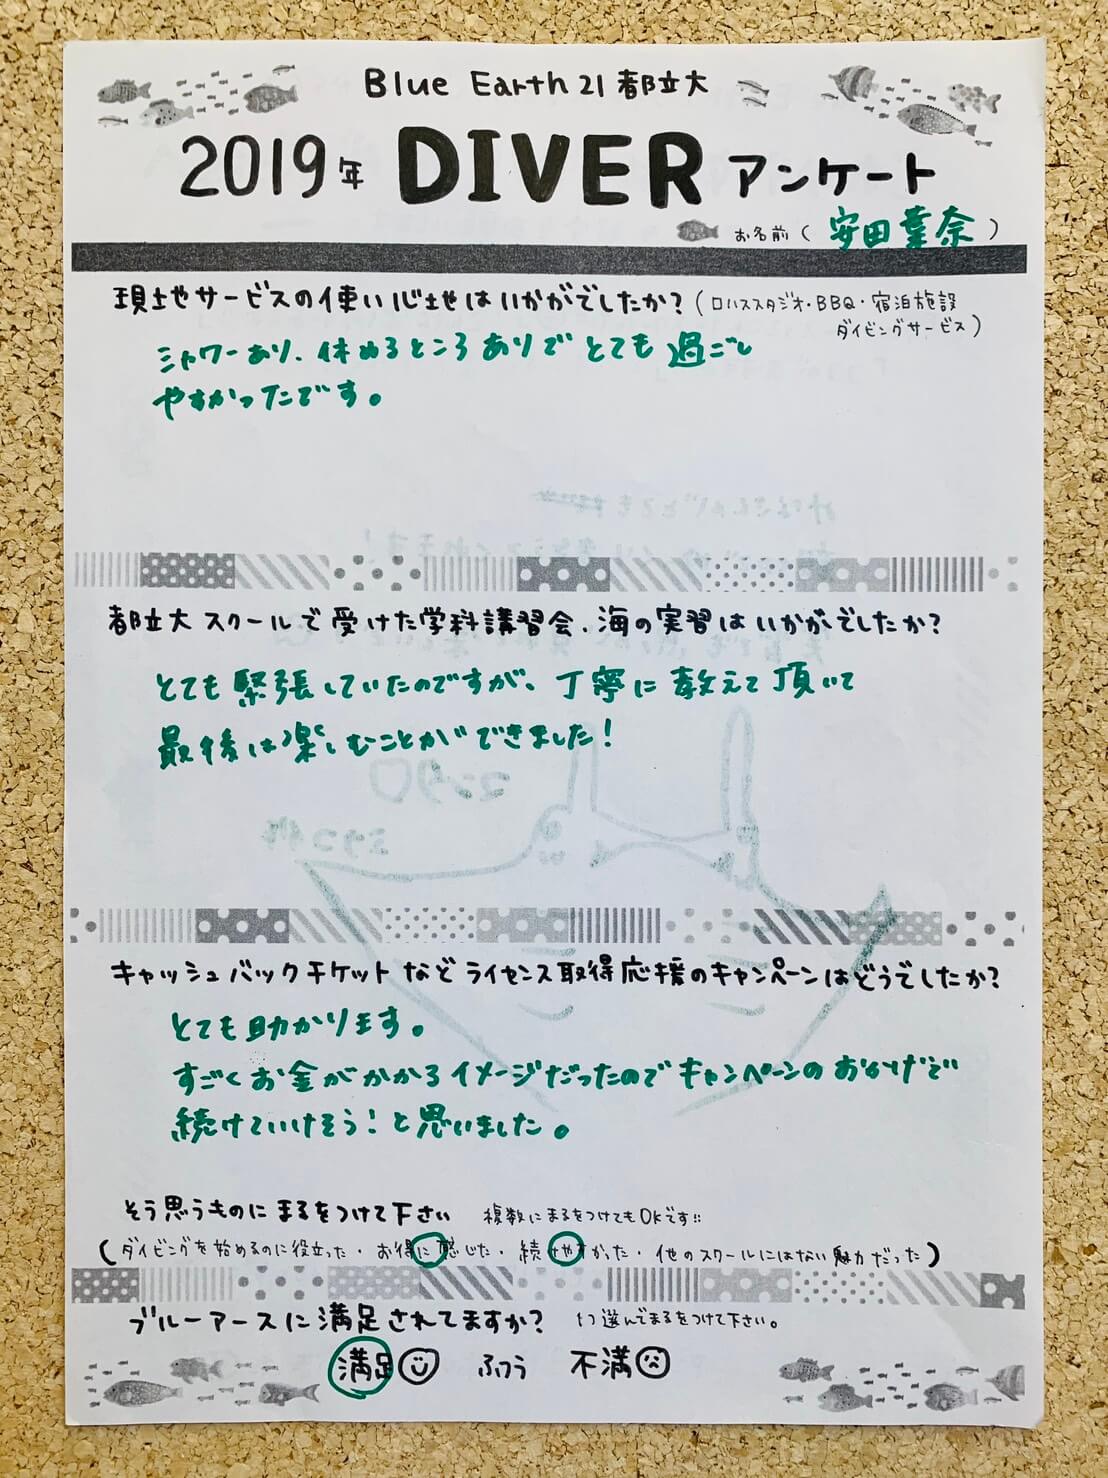 Blue Earth 21 都立大
2019年 DIVER アンケート
お名前 ( 安田葉奈 )
現地やサービスの使い心地はいかがでしたか? (ロハススタジオ・BBQ・宿泊施設
ダイビングサービス)
シャワーあり、休めるところありでとても過ごし
やすかったです。
都立大スクールで受けた学科講習会、海の実習はいかがでしたか?
とても緊張していたのですが、丁寧に教えて頂いて
最後は楽しむことができました!
キャッシュバックチケットなどライセンス取得応援のキャンペーンはどうでしたか?
とても助かります。
すごくお金がかかるイメージだったのでキャンペーンのおかげで
続けていけそう!と思いました。
そう思うものにまるをつけて下さい 複数にまるをつけてもOKです!!
(ダイビングを始めるのに役立った・お得に感じた・続けやすかった・他のスクールにはない魅力だった)
ブルーアースに満足されてますか? 1つ選んでまるをつけて下さい。
満足 ふつう 不満